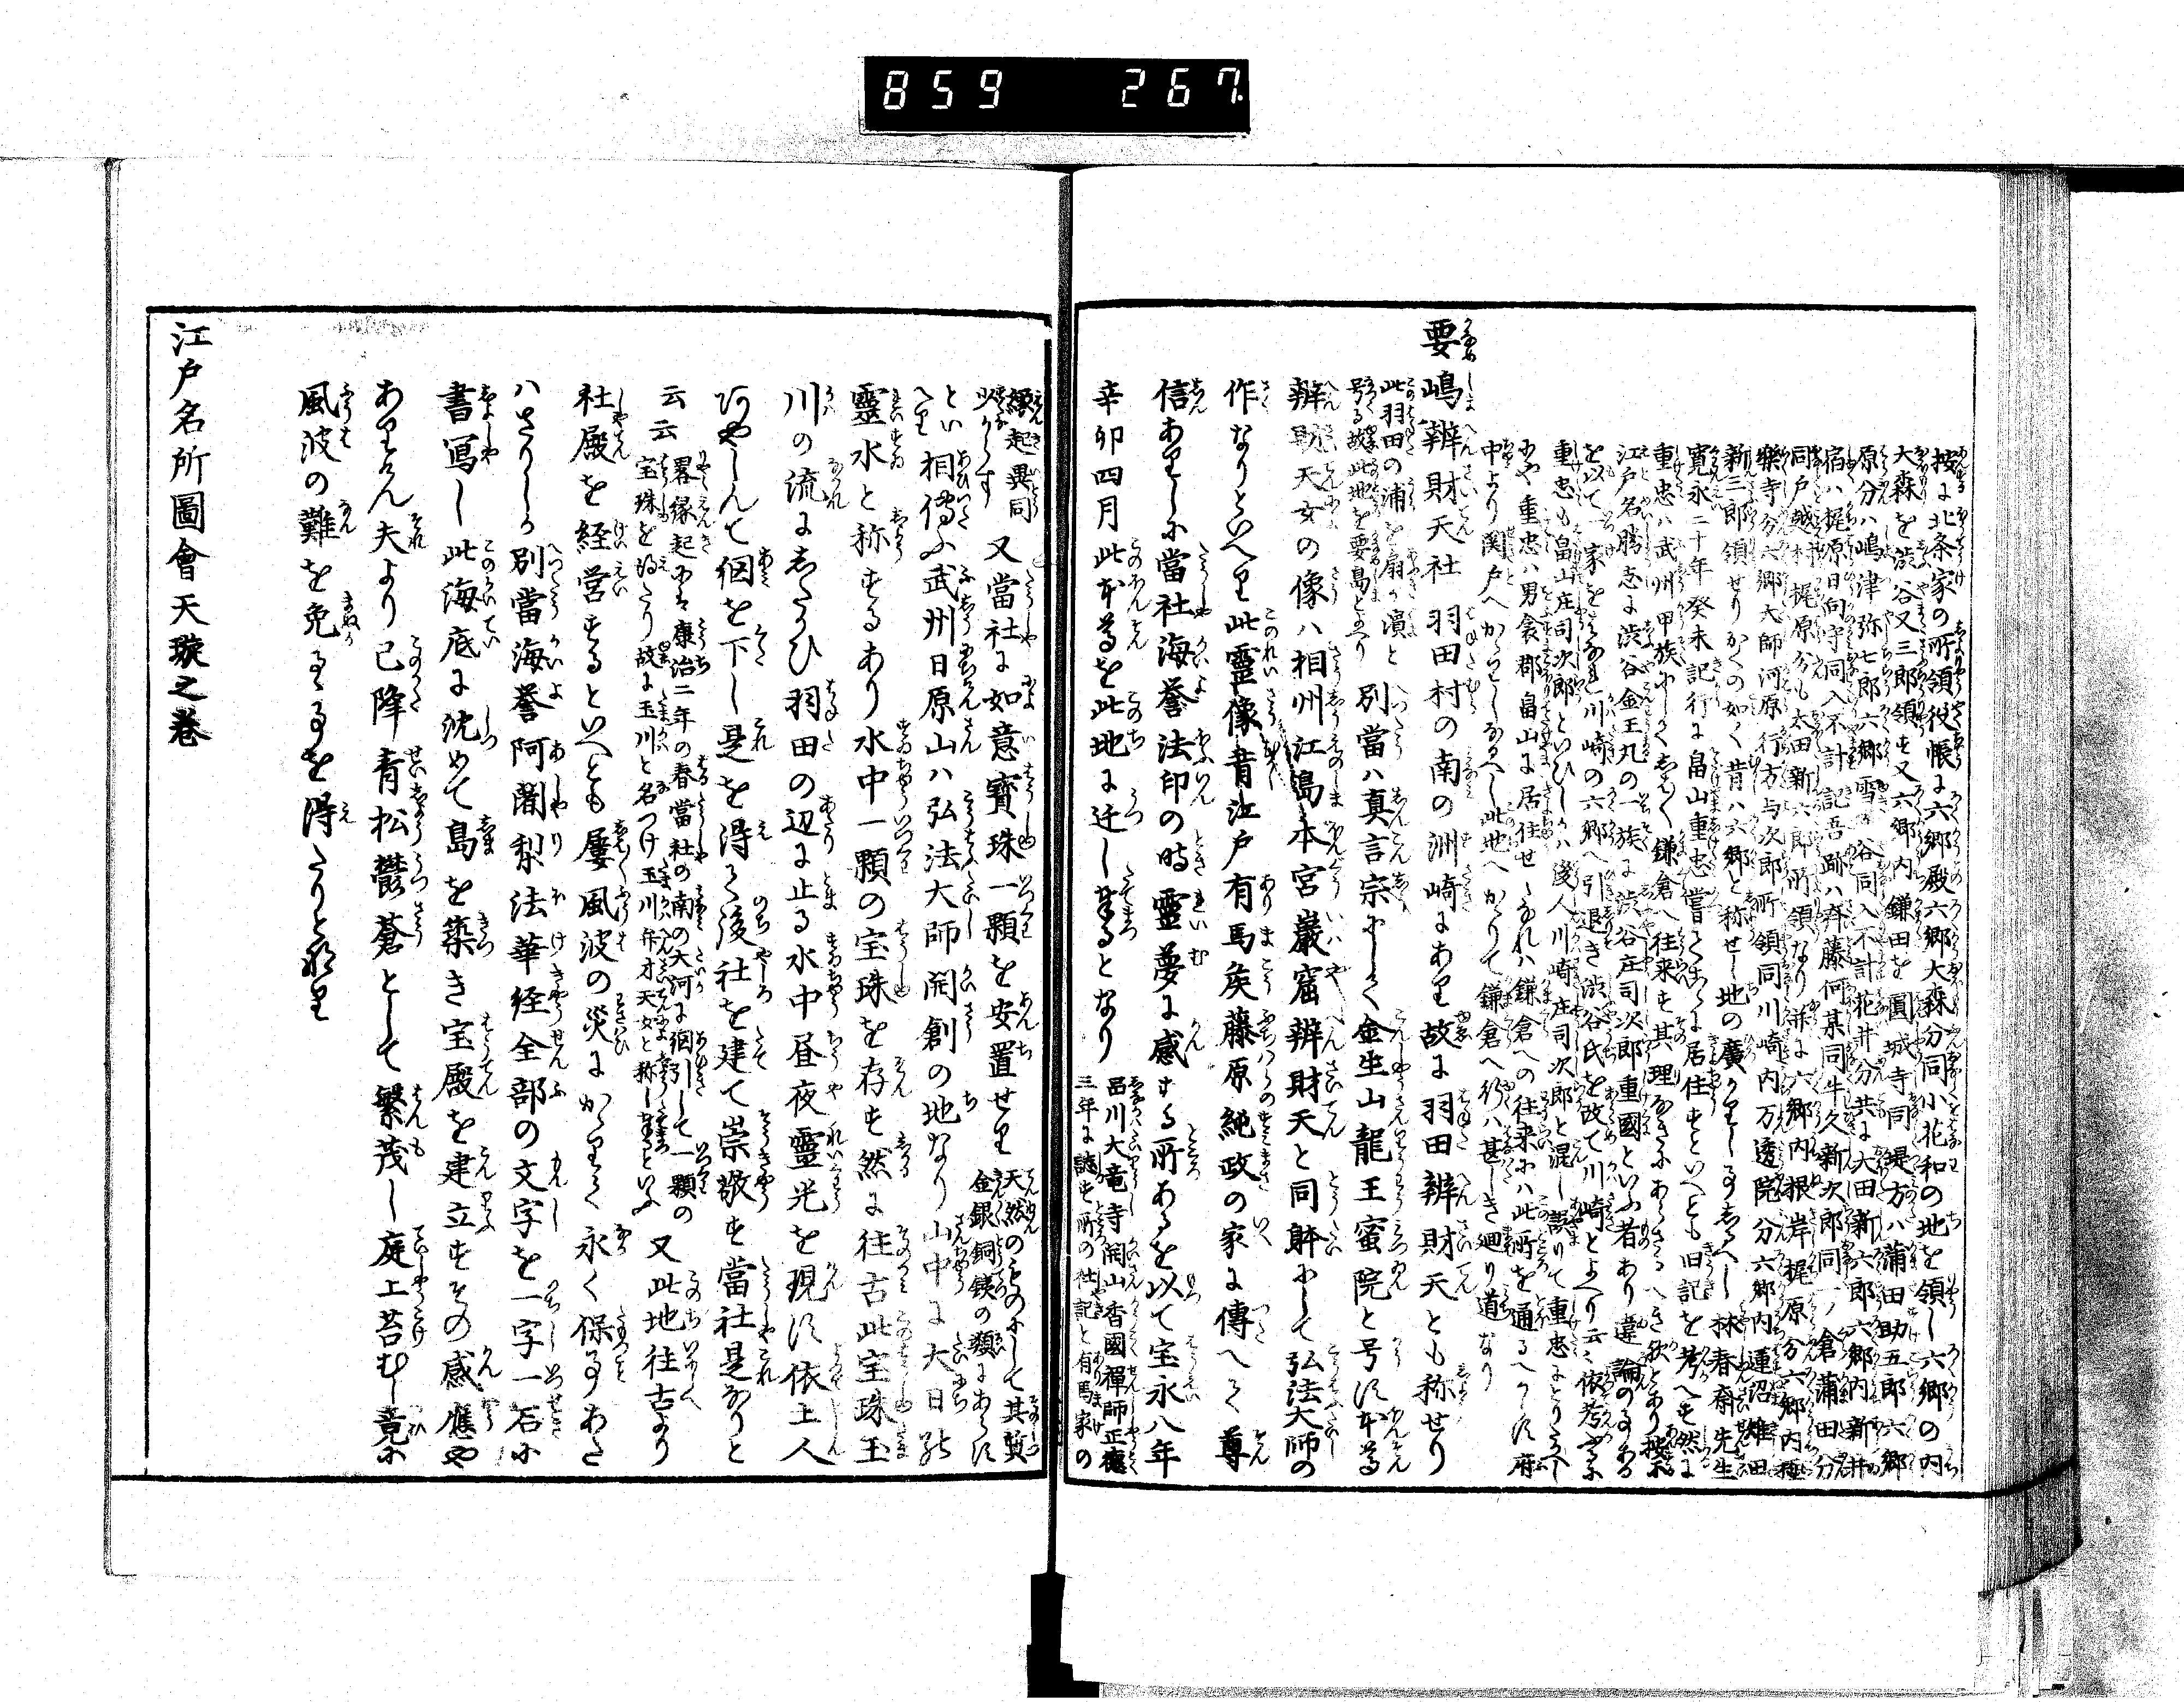 859 267
按に北条家の所領役帳に六郷殿六郷大森分同小花和の地を領し六郷の内
大森を渋谷又三郎領す又六郷内鎌田を圓城寺同堤方ハ蒲田助五郎六郷
原分ハ嶋津弥七郎六郷雪ヶ谷同入不計花井分共に大田新六郎六郷内新井
宿ハ梶原日向守同入不計記吾跡ハ斉藤何某同牛久新次郎同一ノ倉蒲田分
同戸越村梶原分も太田新六郎所領なり并に六郷内根岸梶原分六郷内極
樂寺分六郷大師河原行方与次郎所領同川崎内万透院分六郷内蓮沼雉田
新三郎領せりかくの如く昔ハ六郷と称せし地の廣かりし事しるへし林春斎先生
寛永二十年癸未記行に畠山重忠嘗てこゝに居住すといへとも旧記を考へす然に
重忠ハ武州甲族にしてしは〱鎌倉へ往来す其理なきにあらさるへき歟とあり按に
江戸名勝志に渋谷金王丸の一族に渋谷庄司次郎重國といふ者あり違論の事ある
を以て一家をはなれ川崎の六郷へ引退き渋谷氏を改て川崎とよへり云云依考ふに
重忠も畠山庄司次郎といひしかハ後人川崎庄司次郎と混し誤りて重忠にとりちかへし
にや重忠ハ男衾郡畠山に居住せしなれハ鎌倉への往来にハ此所を通るへからす府
中より関戸へかゝりしなるへし此地へかゝりて鎌倉へ行ハ甚しき廻り道なり
要嶋辨財天社 羽田村の南の洲崎にあり故に羽田辨財天とも称せり
此羽田の浦を扇か濱と
号る故此地を要島とよへり
別當ハ真言宗にして金生山龍王蜜院と号す本尊
辨財天女の像ハ相州江島本宮巌窟辨財天と同躰にして弘法大師の
作なりといへり此靈像昔江戸有馬矦藤原純政の家に傳へて尊
信ありしに當社海誉法印の時靈夢に感する所あるを以て宝永八年
辛卯四月此本尊を此地に迁し奉るとなり
品川大竜寺開山香國禅師正徳
三年に誌す所の社記と有馬家の
縁起異同
少からす
又當社に如意寶珠一顆を安置せり
天然のものにして其質
金銀銅鉄の類にあらす
といへり
相傳ふ武州日原山ハ弘法大師開創の地なり山中に大日
靈水と称するあり水中一顆の宝珠を存す然に往古此宝珠玉
川の流にしたかひ羽田の辺に止る水中昼夜靈光を現す依土人
あやしんて網を下し是を得て後社を建て崇敬す當社是なりと
云云
畧縁起にハ康治二年の春當社の南の大河に網引して一顆の
宝珠を得たり故に玉川と名つけ玉川弁才天女と称し奉るといふ
又此地往古より
社殿を経営するといへとも屡風波の災にかゝりて永く保事あた
ハさりしか別當海誉阿闍梨法華経全部の文字を一字一石に
書冩し此海底に沈めて島を築き宝殿を建立すその感應や
ありけん夫より已降青松鬱蒼として繁茂し庭上苔むし竟に
風波の難を免るゝ事を得たりとなり
江戸名所圖會天璇之巻